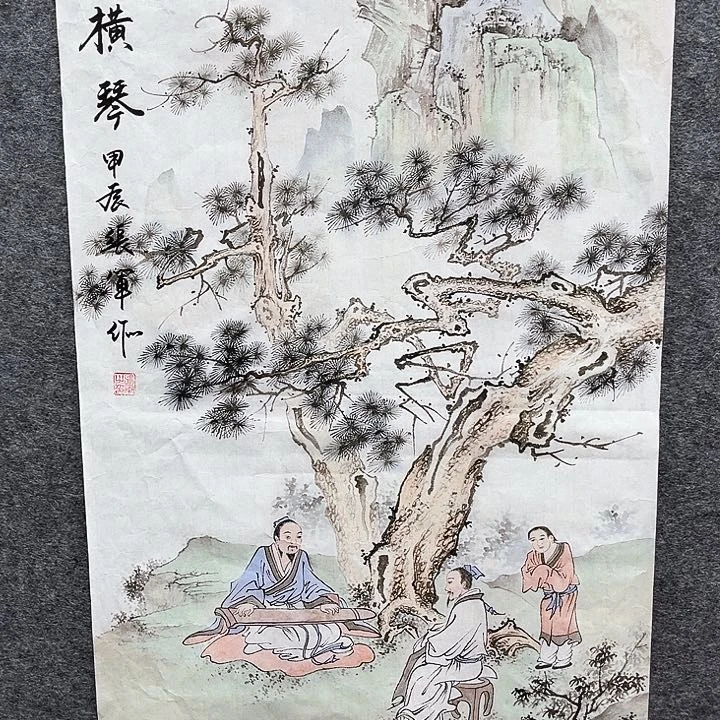 横琴甲辰張軍作